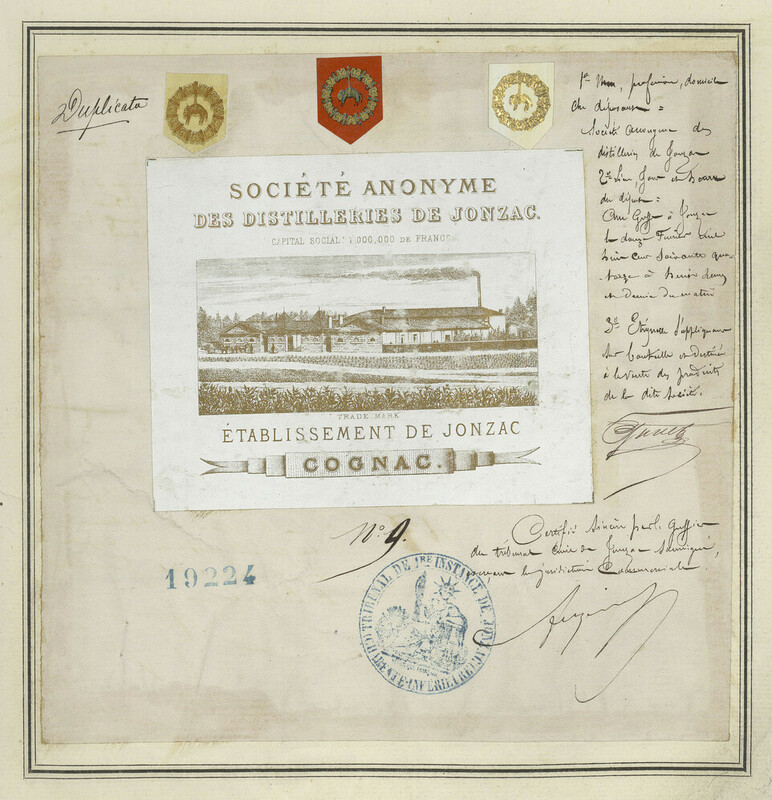 Duplicata
SOCIÉTÉ ANONYME
DES DISTILLERIES DE JONZAC.
CAPITAL SOCIAL: 1.000,000 DE FRANCS
TRADE MARK
ÉTABLISSEMENT DE JONZAC
COGNAC.
1º Nom, profession, domicile
du déposant =
Société anonyme des
distilleries de Jonzac
2º Lieu, Jour et heure
du dépôt =
Au Greffe à Jonzac
le douze Février mil
huit cent soixante qua-
torze à heures
et demie du matin
3º Etiquette s'appliquant
sur bouteille et destinée
à la vente des produits
de la dite Société.
Nº 9.
Certifié Sincère par le Greffier
du tribunal Civil de Jonzac soussigné,
la juridiction Commerciale.
19224
TRIBUNAL DE 1RE INSTANCE DE JONZAC
CHARENTE-INFÉRIEURE